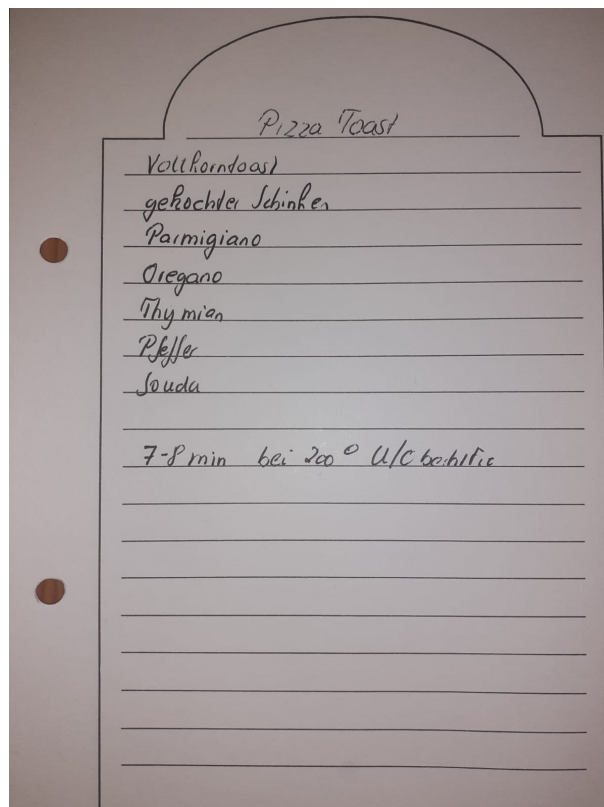 Pizza Toast
Vollkorntoast
gekochter Schinken
Parmigiano
Oregano
Thymian
Pfeffer
Gouda
7-8 min bei 200°